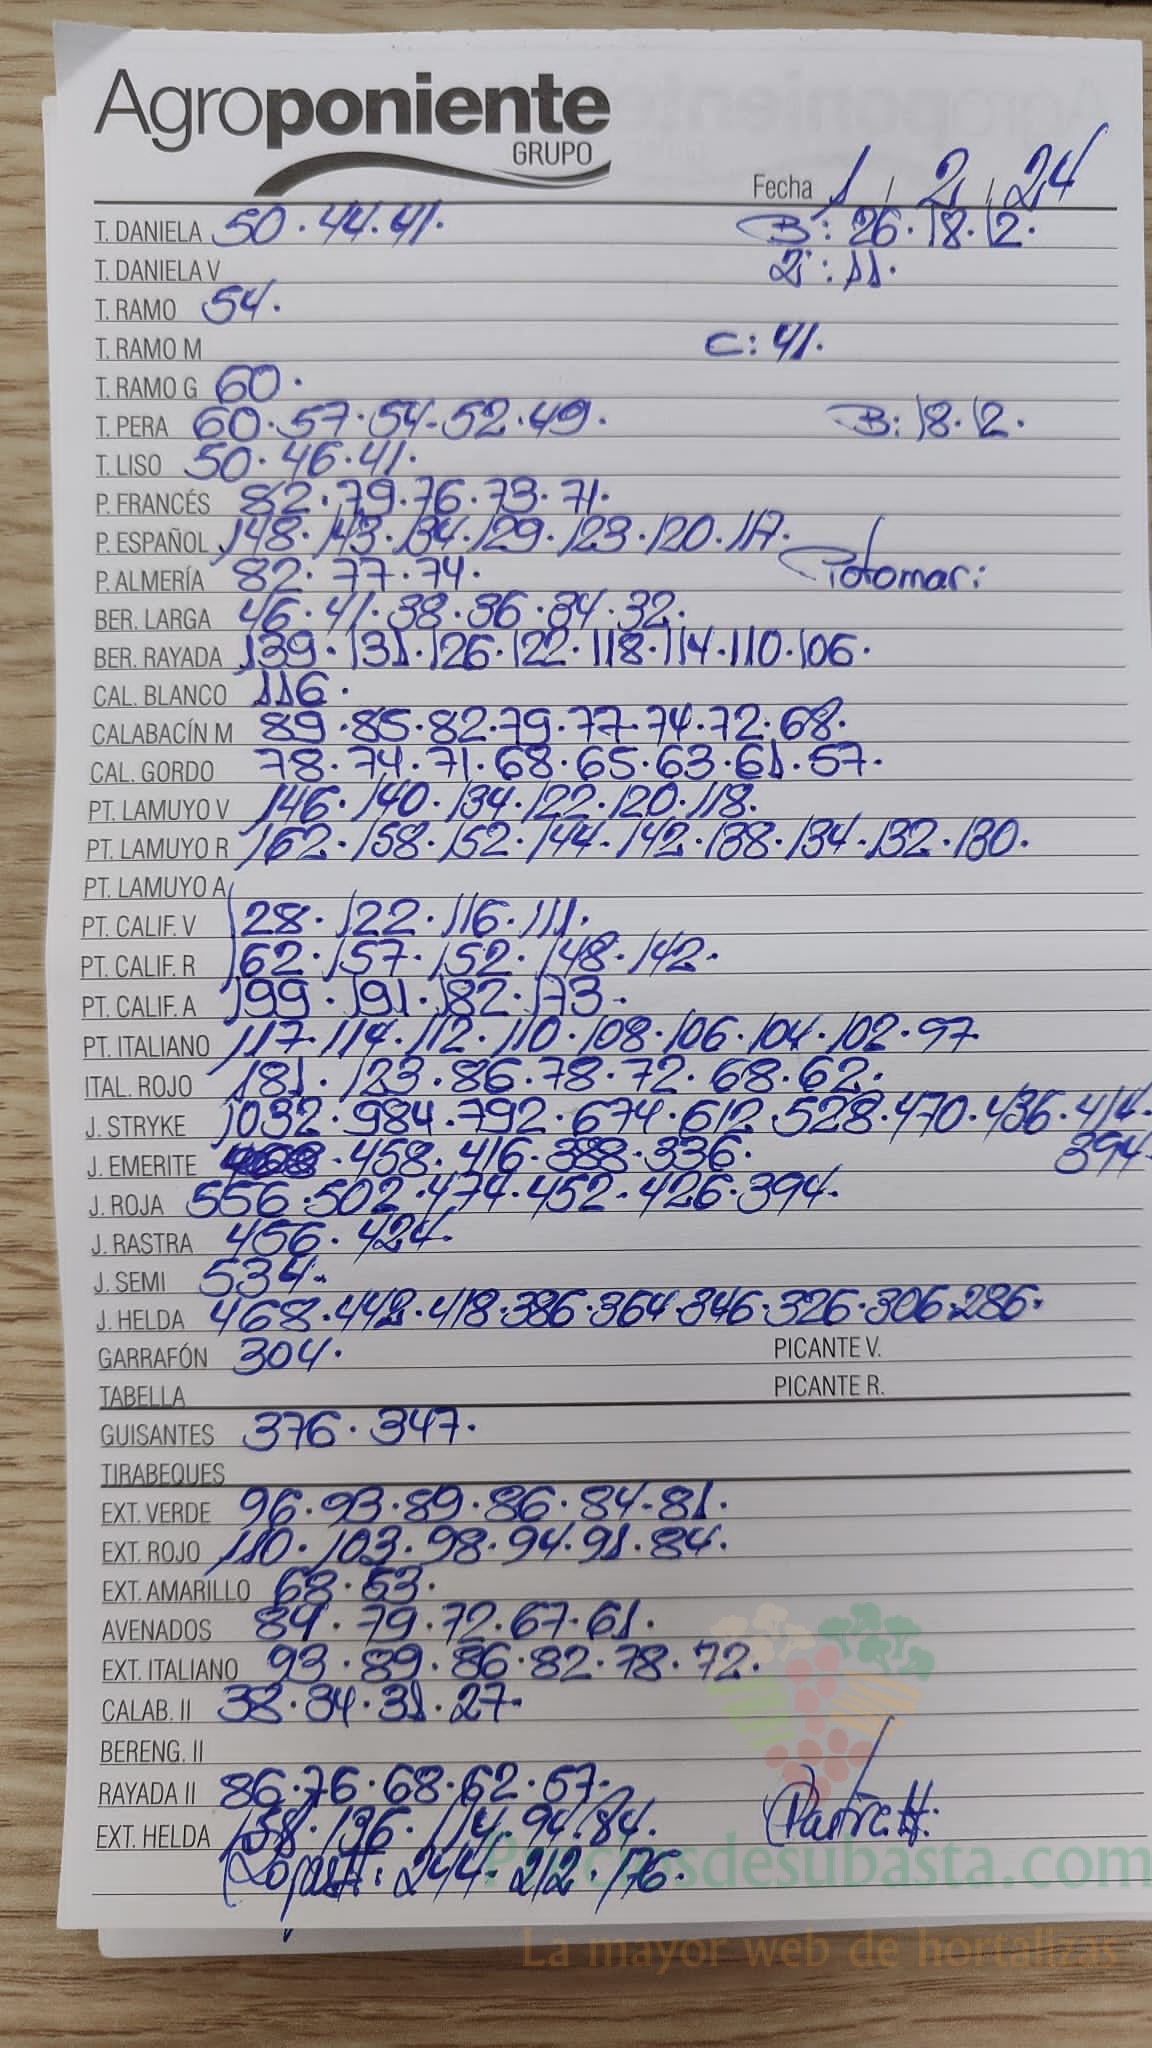 Agroponiente
GRUPO
Fecha 1 / 2 / 24
T. DANIELA 50 · 44 · 41. B: 26 · 18 · 12.
T. DANIELA V 2ª: 11.
T. RAMO 54.
T. RAMO M C: 41.
T. RAMO G 60.
T. PERA 60 · 57 · 54 · 52 · 49. B: 18 · 12.
T. LISO 50 · 46 · 41.
P. FRANCÉS 82 · 79 · 76 · 73 · 71.
P. ESPAÑOL 148 · 143 · 134 · 129 · 123 · 120 · 117.
P. ALMERÍA 82 · 77 · 74. Motomar:
BER. LARGA 46 · 41 · 38 · 36 · 34 · 32.
BER. RAYADA 139 · 131 · 126 · 122 · 118 · 114 · 110 · 106.
CAL. BLANCO 116.
CALABACÍN M 89 · 85 · 82 · 79 · 77 · 74 · 72 · 68.
CAL. GORDO 78 · 74 · 71 · 68 · 65 · 63 · 61 · 57.
PT. LAMUYO V 146 · 140 · 134 · 122 · 120 · 118.
PT. LAMUYO R 162 · 158 · 152 · 144 · 142 · 138 · 134 · 132 · 130.
PT. LAMUYO A
PT. CALIF. V 128 · 122 · 116 · 111.
PT. CALIF. R 162 · 157 · 152 · 148 · 142.
PT. CALIF. A 199 · 191 · 182 · 173.
PT. ITALIANO 117 · 114 · 112 · 110 · 108 · 106 · 104 · 102 · 97
ITAL. ROJO 181 · 123 · 86 · 78 · 72 · 68 · 62.
J. STRYKE 1032 · 984 · 792 · 674 · 612 · 528 · 470 · 436 · 414.
J. EMERITE · 458 · 416 · 388 · 336. 394.
J. ROJA 556 · 502 · 474 · 452 · 426 · 394.
J. RASTRA 456 · 424.
J. SEMI 534.
J. HELDA 468 · 442 · 418 · 386 · 364 · 346 · 326 · 306 · 286.
GARRAFÓN 304. PICANTE V.
TABELLA PICANTE R.
GUISANTES 376 · 347.
TIRABEQUES
EXT. VERDE 96 · 93 · 89 · 86 · 84 · 81.
EXT. ROJO 110 · 103 · 98 · 94 · 91 · 84.
EXT. AMARILLO 68 · 63.
AVENADOS 84 · 79 · 72 · 67 · 61.
EXT. ITALIANO 93 · 89 · 86 · 82 · 78 · 72.
CALAB. II 38 · 34 · 31 · 27.
BERENG. II
RAYADA II 86 · 76 · 68 · 62 · 57.
EXT. HELDA 158 · 136 · 114 · 94 · 84.
244 · 212 · 176.
Preciosdesubasta.com
La mayor web de hortalizas